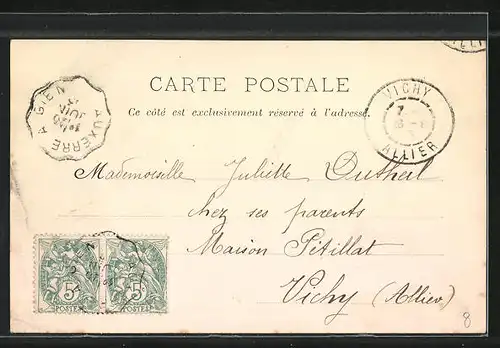 CARTE POSTALE
Ce côté est exclusivement réservé à l'adresse.
AUXERRE A GIEN
VICHY
ALLIER
Mademoiselle Juliette Dutheil
chez ses parents
Maison Pitillat
Vichy (Allier)
5 5
POSTES POSTES
8